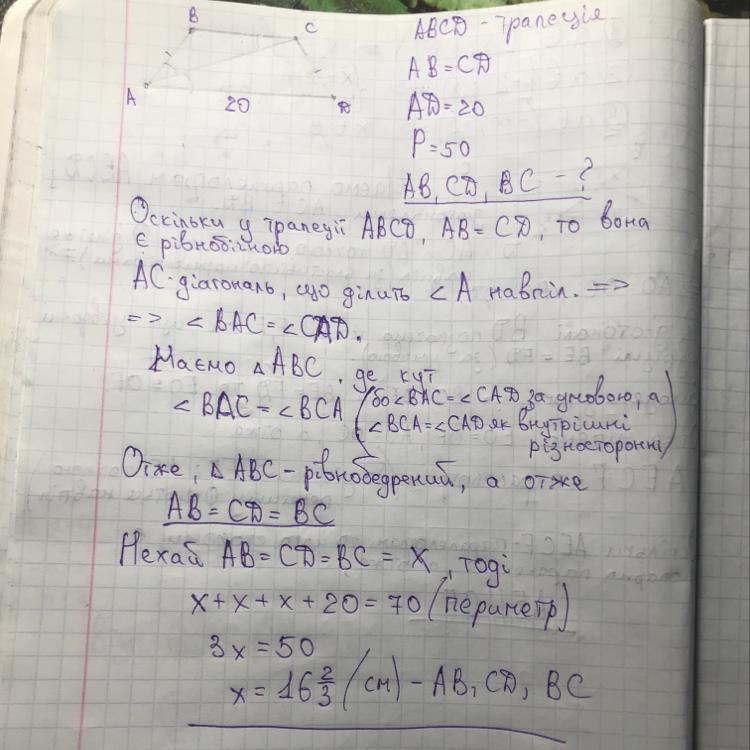 B
C
A
20
D
ABCD - трапеція
AB = CD
AD = 20
P = 50
AB, CD, BC - ?
Оскільки у трапеції ABCD, AB = CD, то вона
є рівнобічною
AC - діагональ, що ділить ∠A навпіл. =>
=> ∠BAC = ∠CAD.
Маємо △ABC, де кут
∠BAC = ∠BCA (бо ∠BAC = ∠CAD за умовою, а
∠BCA = ∠CAD як внутрішні
різносторонні)
Отже, △ABC - рівнобедрений, а отже
AB = CD = BC
Нехай AB = CD = BC = x, тоді
x + x + x + 20 = 70 (периметр)
3x = 50
x = 16 2/3 (см) - AB, CD, BC